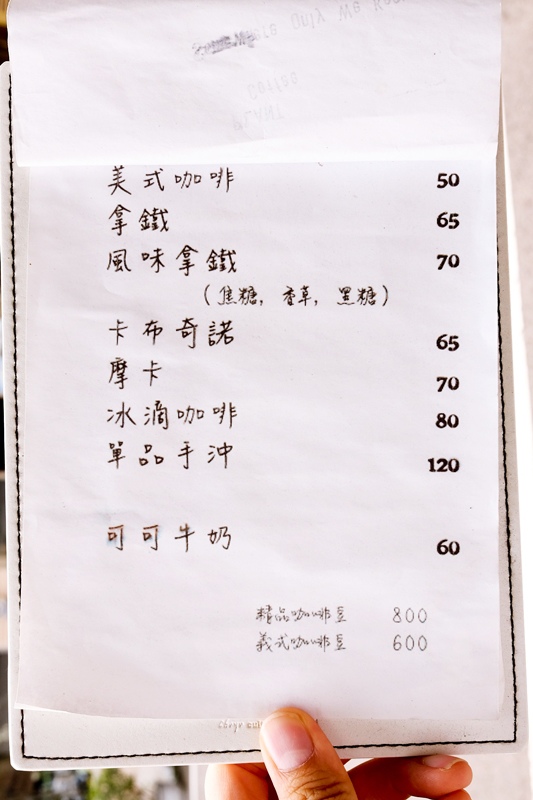 美式咖啡 50
拿鐵 65
風味拿鐵 70
（焦糖, 香草, 黑糖）
卡布奇諾 65
摩卡 70
冰滴咖啡 80
單品手沖 120
可可牛奶 60
精品咖啡豆 800
義式咖啡豆 600